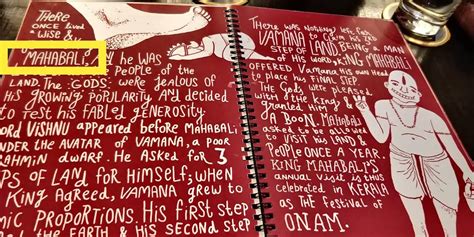 THERE
ONCE LIVED
A WISE &
"MAHABALI," HE WAS
PEOPLE OF THE
LAND. THE :GODS: WERE JEALOUS OF
HIS GROWING POPULARITY AND DECIDED
TO TEST HIS FABLED GENEROSITY.
LORD VISHNU APPEARED BEFORE MAHABALI
UNDER THE AVATAR OF VAMANA, A POOR
BRAHMIN DWARF. HE ASKED FOR 3
STEPS OF LAND FOR HIMSELF; WHEN
KING AGREED, VAMANA GREW TO
COSMIC PROPORTIONS. HIS FIRST STEP
THE EARTH & HIS SECOND STEP
THERE WAS NOTHING LEFT FOR
VAMANA LAND BEING A MAN
STEP OF KING MAHABALI
OF HIS WORD,
OFFERED VAMANA HIS OWN HEAD
TO PLACE HIS FINAL STEP.
THE GODS WERE PLEASED
WITH THE KING &
GRANTED HIM
A BOON. MAHABALI
ASKED TO BE ALLOWED
TO VISIT HIS LAND &
PEOPLE ONCE A YEAR.
KING MAHABALI'S
ANNUAL VISIT IS THUS
CELEBRATED IN KERALA
AS THE FESTIVAL OF
ONAM.